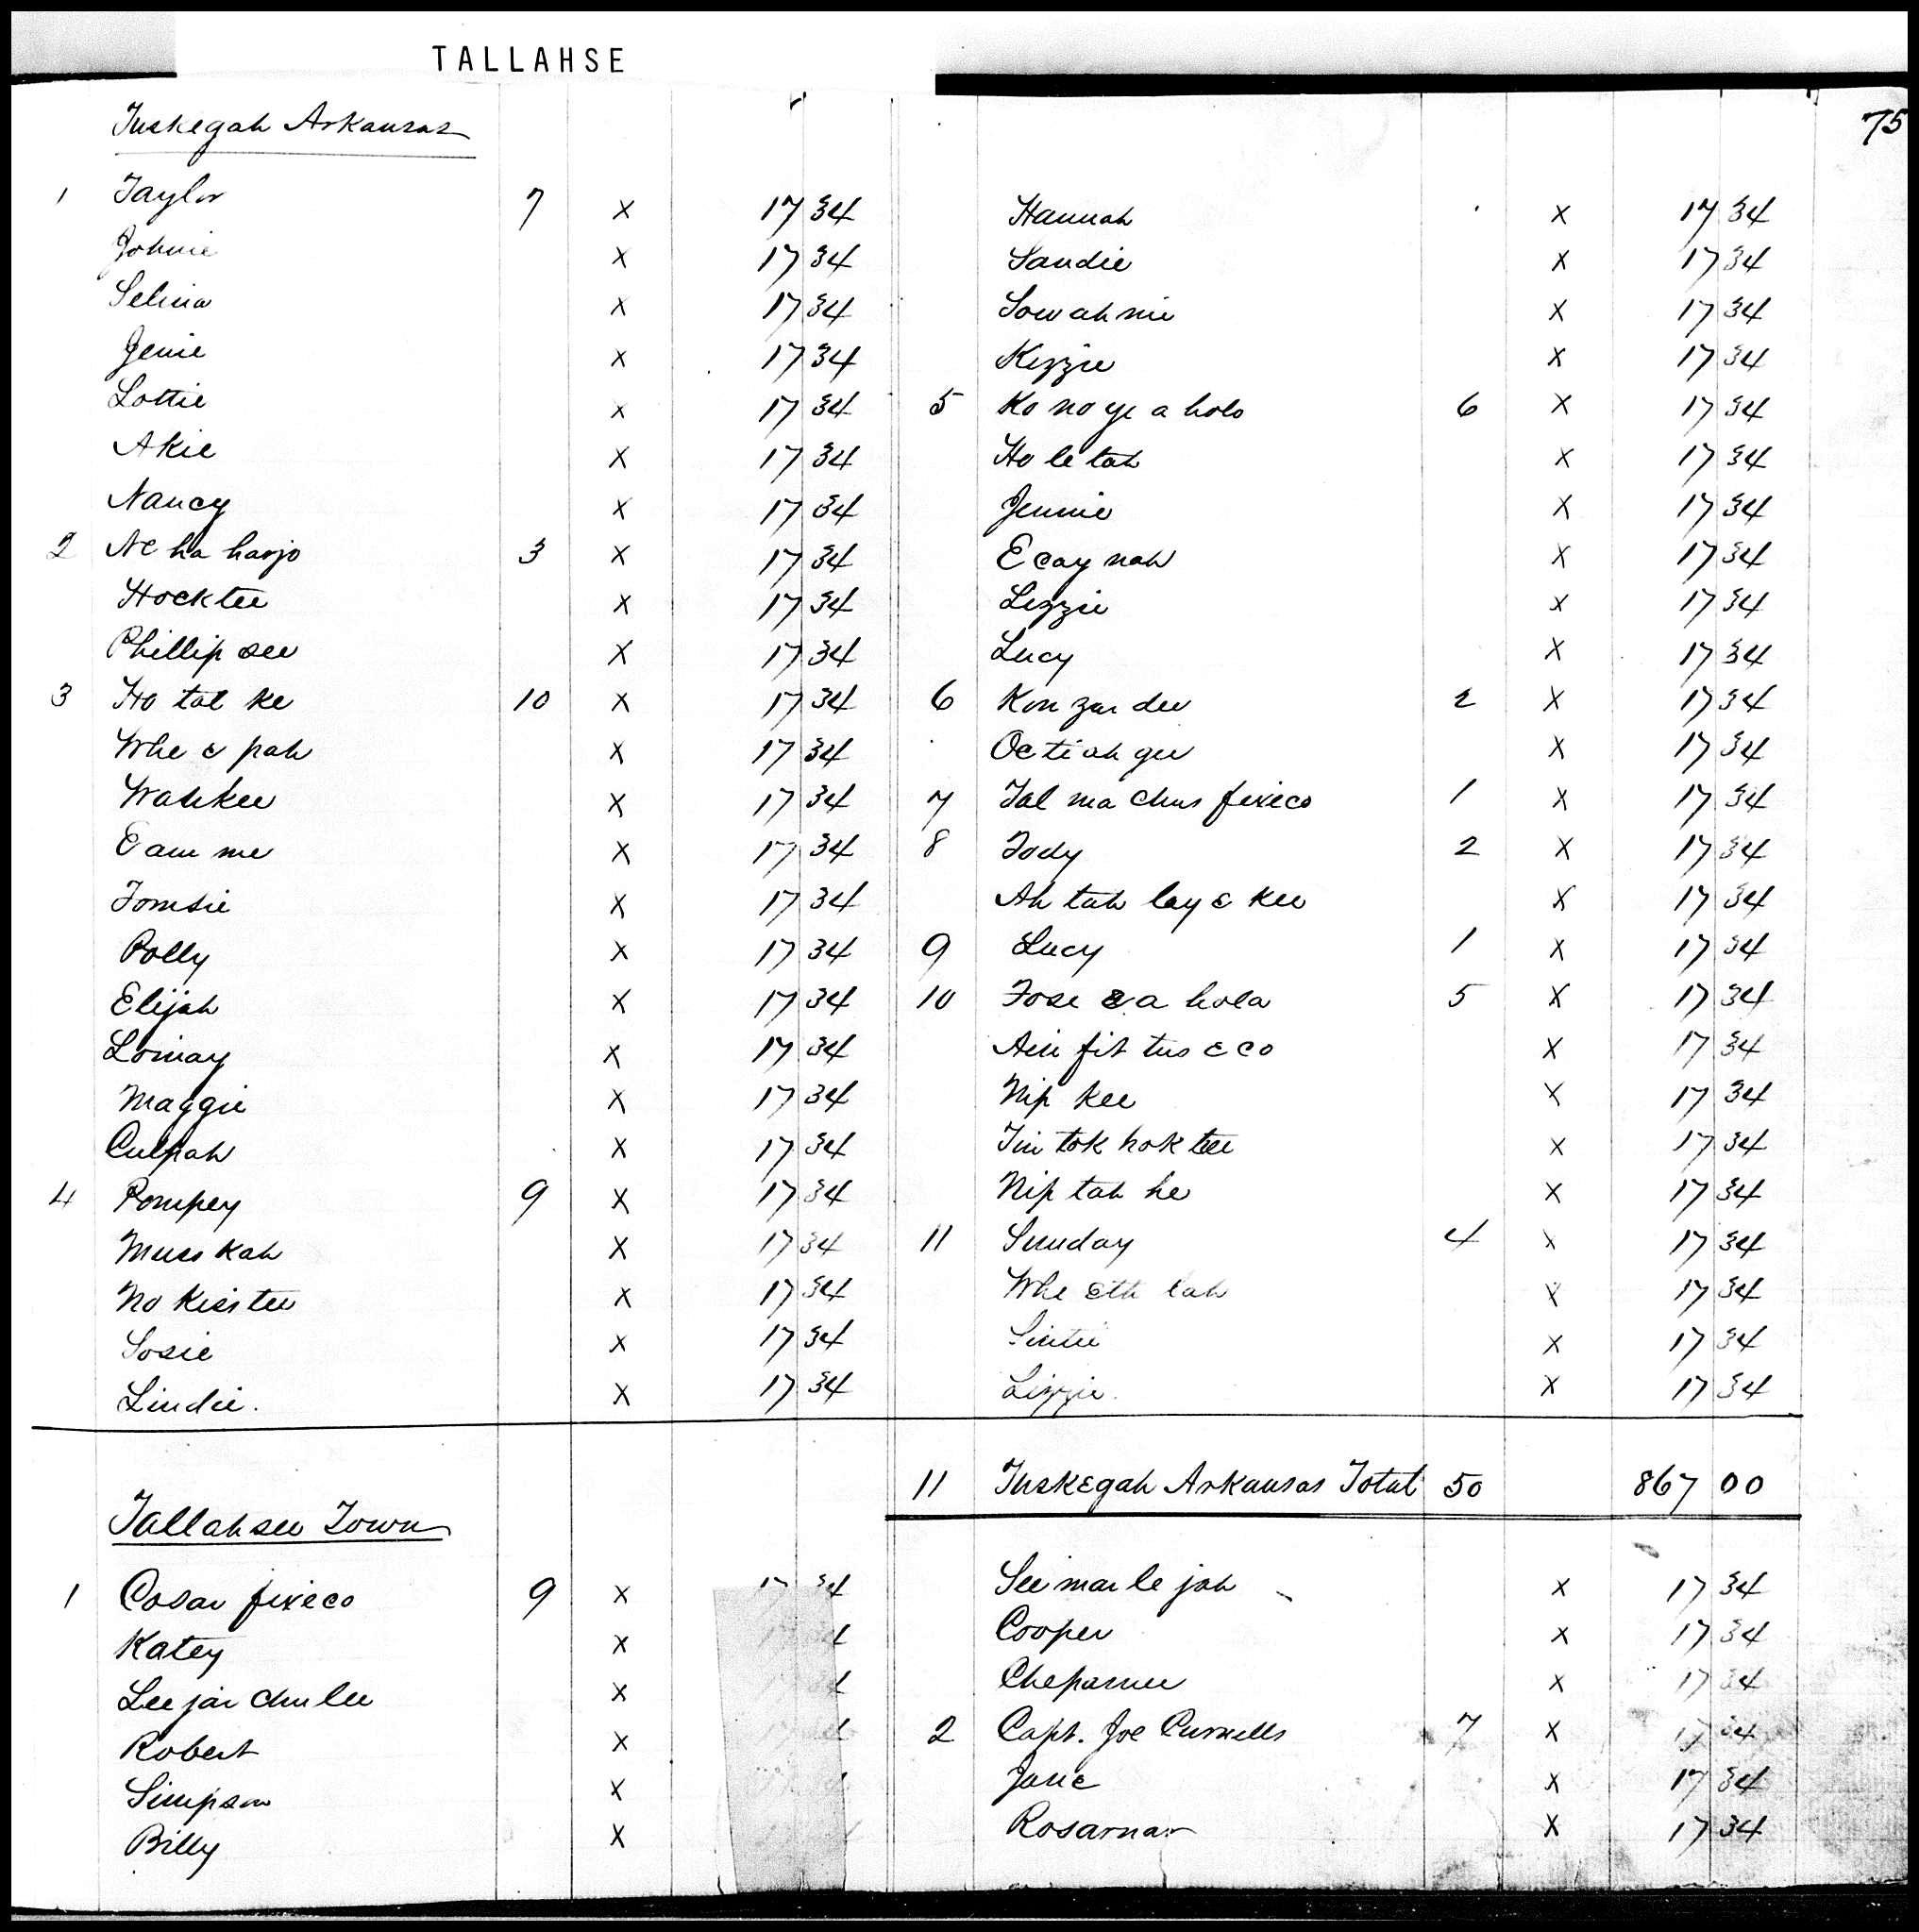 TALLAHSE
75
Tuskegah Arkansas
1 Taylor 7 x 17 34
Johnie x 17 34
Selina x 17 34
Jenie x 17 34
Lottie x 17 34
Akie x 17 34
Nancy x 17 34
2 Ne ha harjo 3 x 17 34
Hocktee x 17 34
Phillip see x 17 34
3 Ho tal ke 10 x 17 34
Whe e pah x 17 34
Wahkee x 17 34
E am me x 17 34
Tomsie x 17 34
Polly x 17 34
Elijah x 17 34
Lomay x 17 34
Maggie x 17 34
Culpah x 17 34
4 Pompey 9 x 17 34
Muss kah x 17 34
No kisstee x 17 34
Sosie x 17 34
Lindie. x 17 34
Hannah x 17 34
Sandie x 17 34
Sow ah nie x 17 34
Kizzie x 17 34
5 Ko no ye a holo 6 x 17 34
Ho le tah x 17 34
Jennie x 17 34
E cay nah x 17 34
Lizzie x 17 34
Lucy x 17 34
6 Kon zar dee 2 x 17 34
Oc ti ah gee x 17 34
7 Tal ma chus fixeco 1 x 17 34
8 Tody 2 x 17 34
Ah tah lay e kee x 17 34
9 Lucy 1 x 17 34
10 Fose e a hola 5 x 17 34
Ain fis tus e co x 17 34
Nip kee x 17 34
Tim tok hok tee x 17 34
Nip tah he x 17 34
11 Sunday 4 x 17 34
Whe eth lah x 17 34
x 17 34
Lizzie. x 17 34
11 Tuskegah Arkansas Total 50 867 00
Tallahsee Town
1 Cosar fixeco 9 x 17 34
Katey x
Lee jar chu lee x
Robert x
Simpson x
Billy x
See mar le jah x 17 34
Cooper x 17 34
Cheparnee x 17 34
2 Capt. Joe Purnells 7 x 17 34
Jane x 17 34
Rosarnar x 17 34